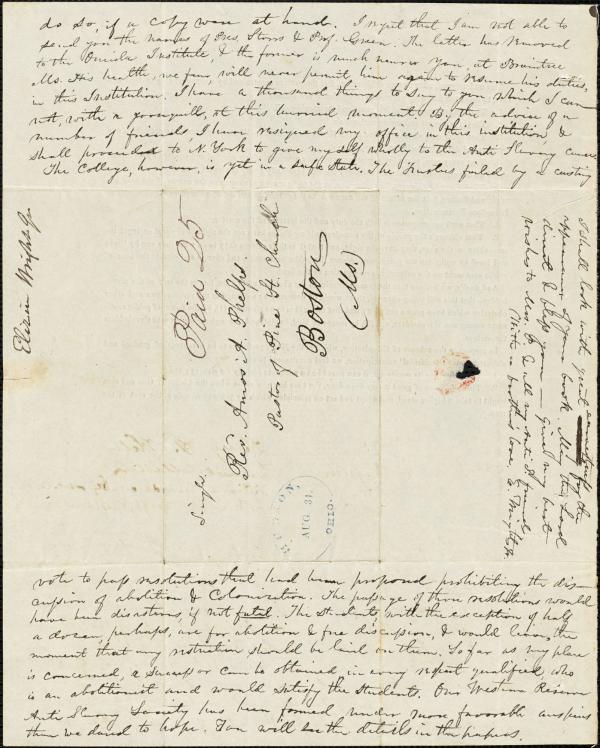 do so, if a copy were at hand. I regret that I am not able to
send you the names of Pres. Storrs & Prof. Green. The latter has removed
to the Oneida Institute, & the former is much nearer you, at Braintree
Ms. His health, we fear, will never permit him again to resume his duties,
in this Institution. I have a thousand things to say to you which I can
not, with a goosequill, at this hurried moment. By the advice of a
number of friends, I have resigned my office in this institution &
shall proceed to N. York to give myself wholly to the Anti Slavery cause.
The College, however, is yet in a safe state. The Trustees failed by a casting
Elizur Wright Jr.
Paid 25
Single
Rev. Amos A. Phelps.
Pastor of Pine St. Church
Boston
(Ms.)
HUDSON
AUG. 31
OHIO.
I shall look with great for the
appearance of your book. May the Lord
direct & bless you — give my best
wishes to Mrs. P. & all our Anti S. friends
With a brother's love, E. Wright Jr.
vote to pass resolutions that had been proposed prohibiting the dis-
cussion of abolition & Colonization. The passage of those resolutions would
have been disastrous, if not fatal. The students, with the exception of half
a dozen, perhaps, are for abolition & free discussion, & would leave, the
moment that any restriction should be laid on them. So far as my place
is concerned, a successor can be obtained in every respect qualified, who
is an abolitionist and would satisfy the students. Our Western Reserve
Anti Slavery Society has been formed under more favorable auspices
than we dared to hope. You will see the details in the papers.